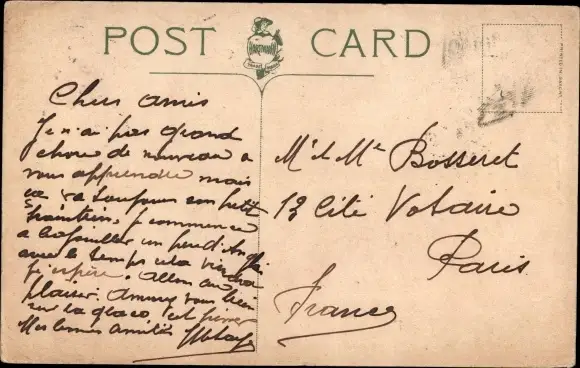 POST CARD
HARTMANN
Chers amis
Je n'ai pas grand
chose de nouveau a
vous apprendre mais
ca va toujours son petit
traintrain, je commence
a bafouiller un peu d'Anglais
avec le temps cela viendra
j'espère. Allons au
plaisir. Amusez vous bien
sur la glace, et
Mes bonnes amitiés
Mr & Mme Bosseret
12 Cité Voltaire
Paris
France